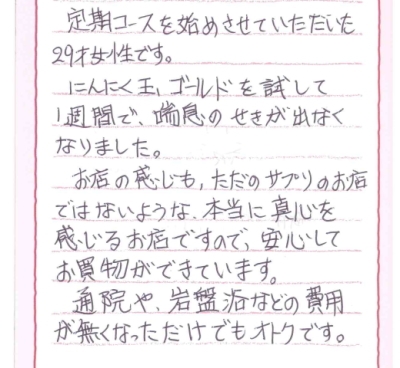 定期コースを始めさせていただいた
29才女性です。
にんにく玉、ゴールドを試して
1週間で、喘息のせきが出なく
なりました。
お店の感じも、ただのサプリのお店
ではないような、本当に真心を
感じるお店ですので、安心して
お買物ができています。
通院や、岩盤浴などの費用
が無くなっただけでもオトクです。